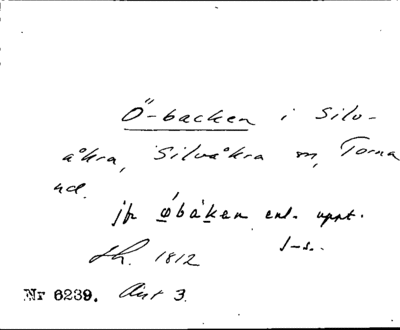 Ö-backen i Silv-
åkra, Silvåkra sn, Torna
hd.
jfr øbåken enl. uppt.
Sk. 1812
Nr 6239. Ant 3.